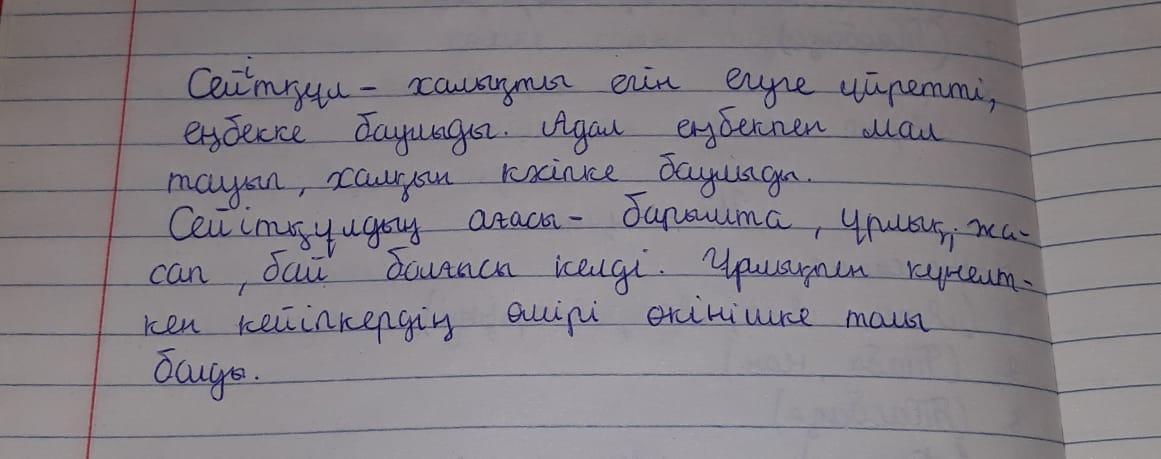 Сейітқұл – халықты егін егуге үйретті,
еңбекке баулыды. Адал еңбекпен мал
тауып, халқын кәсіпке баулыды.
Сейітқұлдың ағасы – барымта, ұрлық жа-
сап, бай болғысы келді. Ұрлықпен күнелт-
кен кейіпкердің өмірі өкінішке толы
болды.